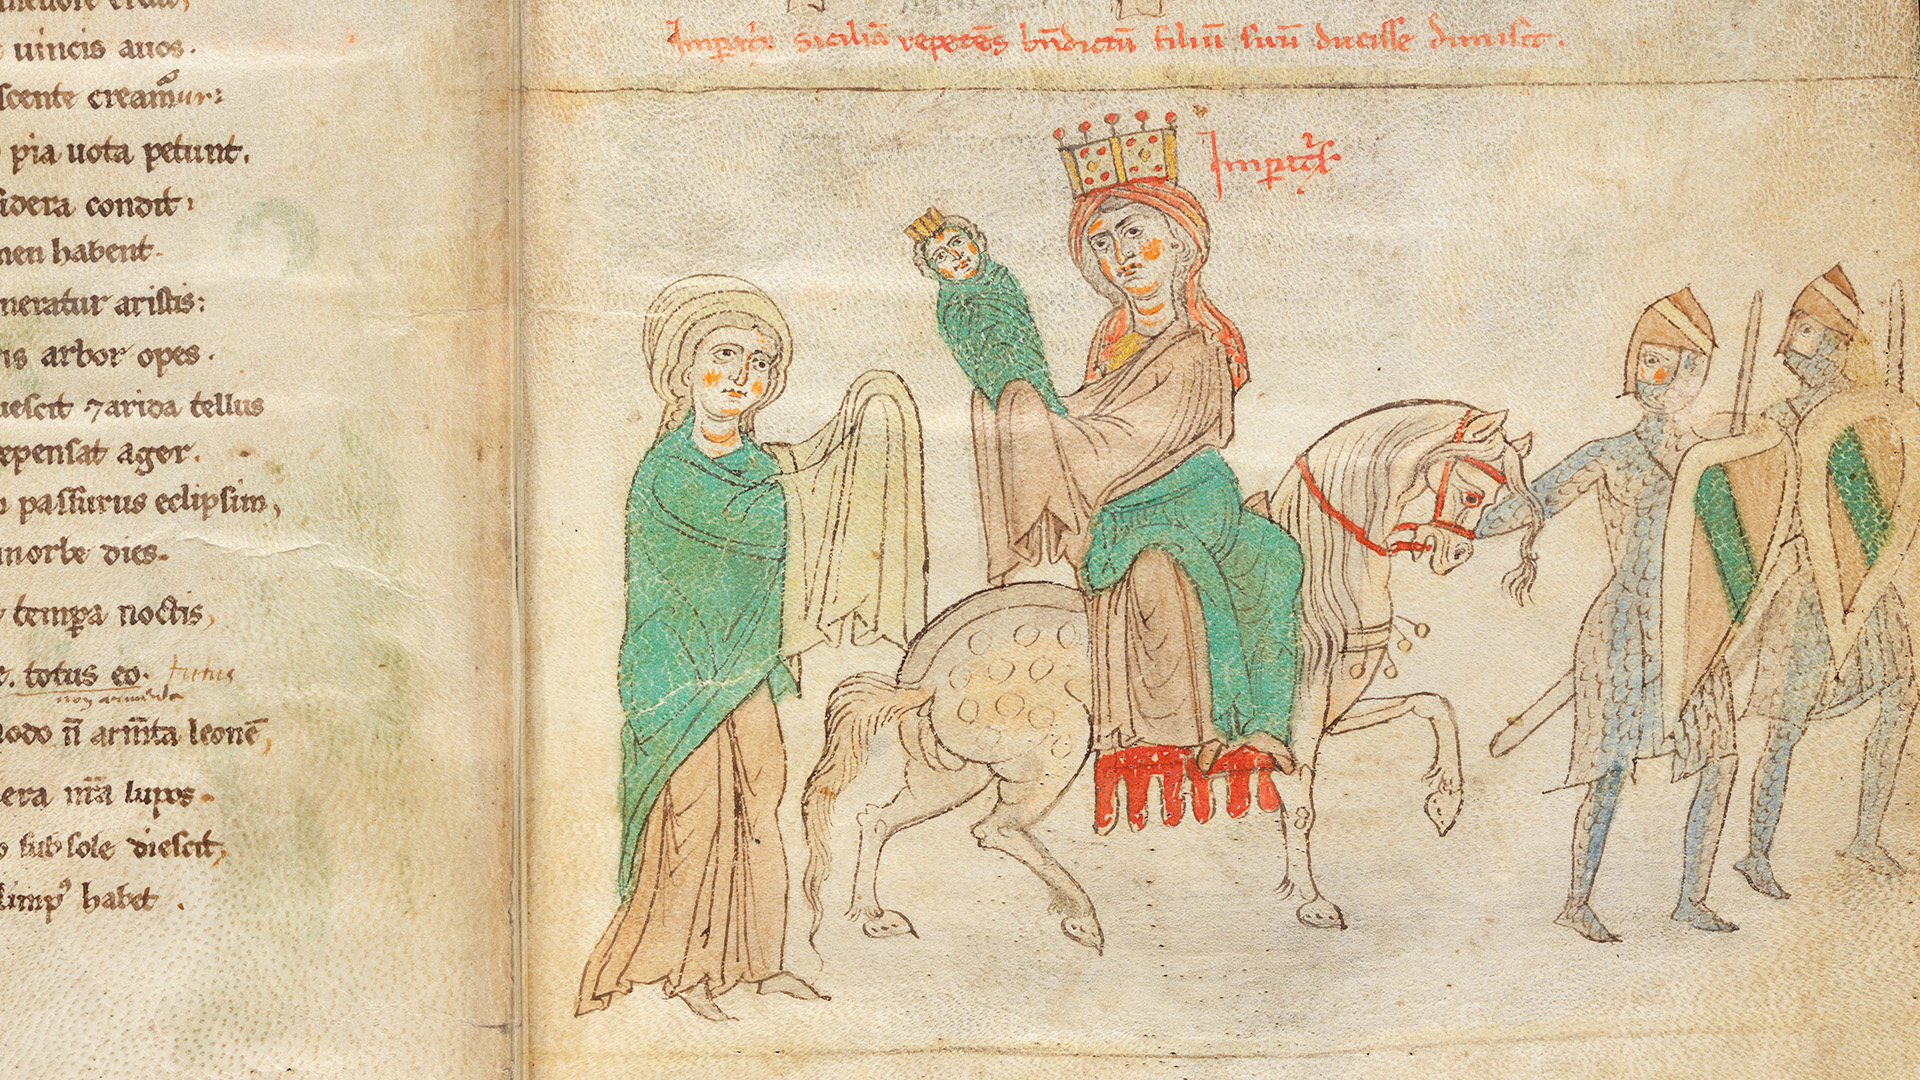 uincis auos.
scente creamur:
pia uota petunt.
sidera condit:
men habent.
neratur aristis:
arbor opes.
uescit ⁊ arida tellus
epensat ager.
passurus eclipsim,
in orbe dies.
tempa noctis,
totus eo.
modo n̄ arm̄ta leonē,
era nr̄a lupos.
sub sole diescit,
simp̉ habet.
Imperat͛x siciliā repetēs bn̄dictū filiū suū ducisse dimisit.
Imperat͛x